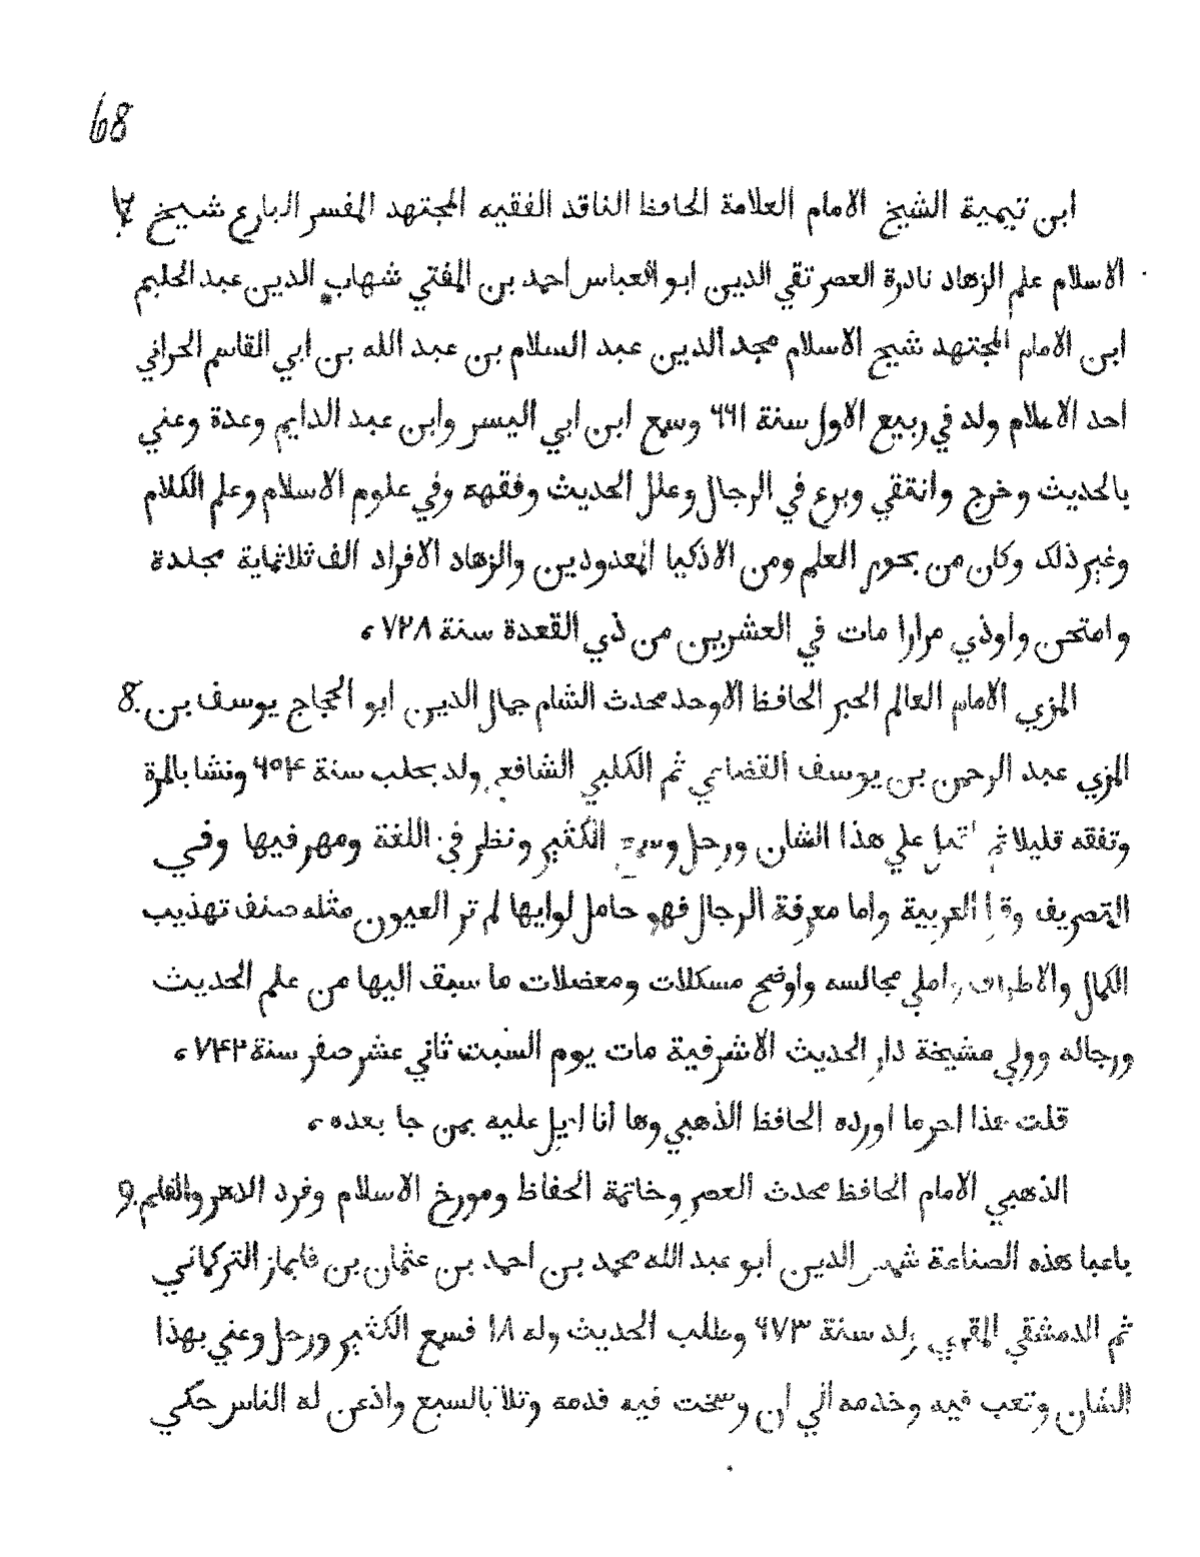 68
ابن تيمية الشيخ الامام العلامة الحافظ الناقد الفقيه المجتهد المفسر البارع شيخ
الاسلام علم الزهاد نادرة العصر تقي الدين ابو العباس احمد بن المفتي شهاب الدين عبد الحليم
ابن الامام المجتهد شيخ الاسلام مجد الدين عبد السلام بن عبد الله بن ابي القاسم الحراني
احد الاعلام ولد في ربيع الاول سنة ٦٦١ وسمع ابن ابي اليسر وابن عبد الدايم وعدة وعني
بالحديث وخرج وانتقي وبرع في الرجال وعلل الحديث وفقهه وفي علوم الاسلام وعلم الكلام
وغير ذلك وكان من بحور العلم ومن الاذكيا المعدودين والزهاد الافراد الف ثلاثماية مجلدة
وامتحن واوذي مرارا مات في العشرين من ذي القعدة سنة ٧٢٨،
المزي الامام العالم الحبر الحافظ الاوحد محدث الشام جمال الدين ابو الحجاج يوسف بن 8.
المزي عبد الرحمن بن يوسف القضاعي ثم الكلبي الشافعي ولد بحلب سنة ٦٥٤ ونشا بالمزة
وتفقه قليلا ثم علي هذا الشان ورحل وسمع الكثير ونظر في اللغة ومهر فيها وفي
التصريف وقرا العربية واما معرفة الرجال فهو حامل لوايها لم تر العيون مثله صنف تهذيب
الكمال والاطراف واملي مجالسه واوضح مسكلات ومعضلات ما سبق اليها من علم الحديث
ورجاله وولي مشيخة دار الحديث الاشرفية مات يوم السبت ثاني عشر صفر سنة ٧٤٢،
قلت هذا اخر ما اورده الحافظ الذهبي وها انا اذيل عليه بمن جا بعده،
الذهبي الامام الحافظ محدث العصر وخاتمة الحفاظ ومورخ الاسلام وفرد الدهر والقايم 9.
باعبا هذه الصناعة شمس الدين ابو عبد الله محمد بن احمد بن عثمان بن قايماز التركماني
ثم الدمشقي المقري ولد سنة ٦٧٣ وطلب الحديث وله ١٨ فسمع الكثير ورحل وعني بهذا
الشان وتعب فيه وخدمه الي ان رسخت فيه قدمه وتلا بالسبع واذعن له الناس حكي